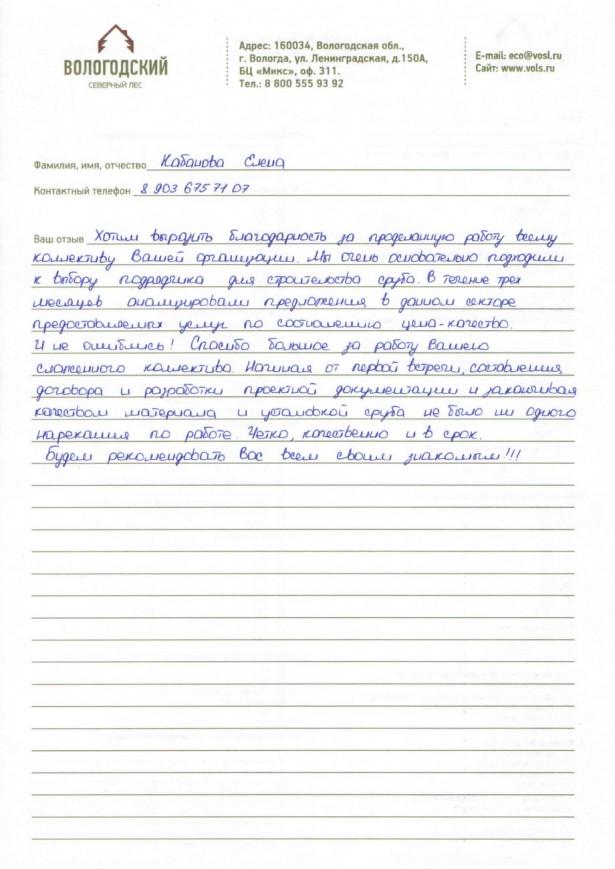 ВОЛОГОДСКИЙ
СЕВЕРНЫЙ ЛЕС
Адрес: 160034, Вологодская обл.,
г. Вологда, ул. Ленинградская, д.150А,
БЦ «Микс», оф. 311.
Тел.: 8 800 555 93 92
E-mail: eco@vosl.ru
Сайт: www.vols.ru
Фамилия, имя, отчество Кабанова Елена
Контактный телефон 8 903 675 71 07
Ваш отзыв Хотим выразить благодарность за проделанную работу всему
коллективу Вашей организации. Мы очень основательно подходили
к выбору подрядчика для строительства сруба. В течение трех
месяцев анализировали предложения в данном секторе
предоставляемых услуг по соотношению цена-качество.
И не ошиблись! Спасибо большое за работу Вашего
слаженного коллектива. Начиная от первой встречи, составления
договора и разработки проектной документации и заканчивая
качеством материала и установкой сруба не было ни одного
нарекания по работе. Четко, качественно и в срок.
Будем рекомендовать Вас всем своим знакомым!!!